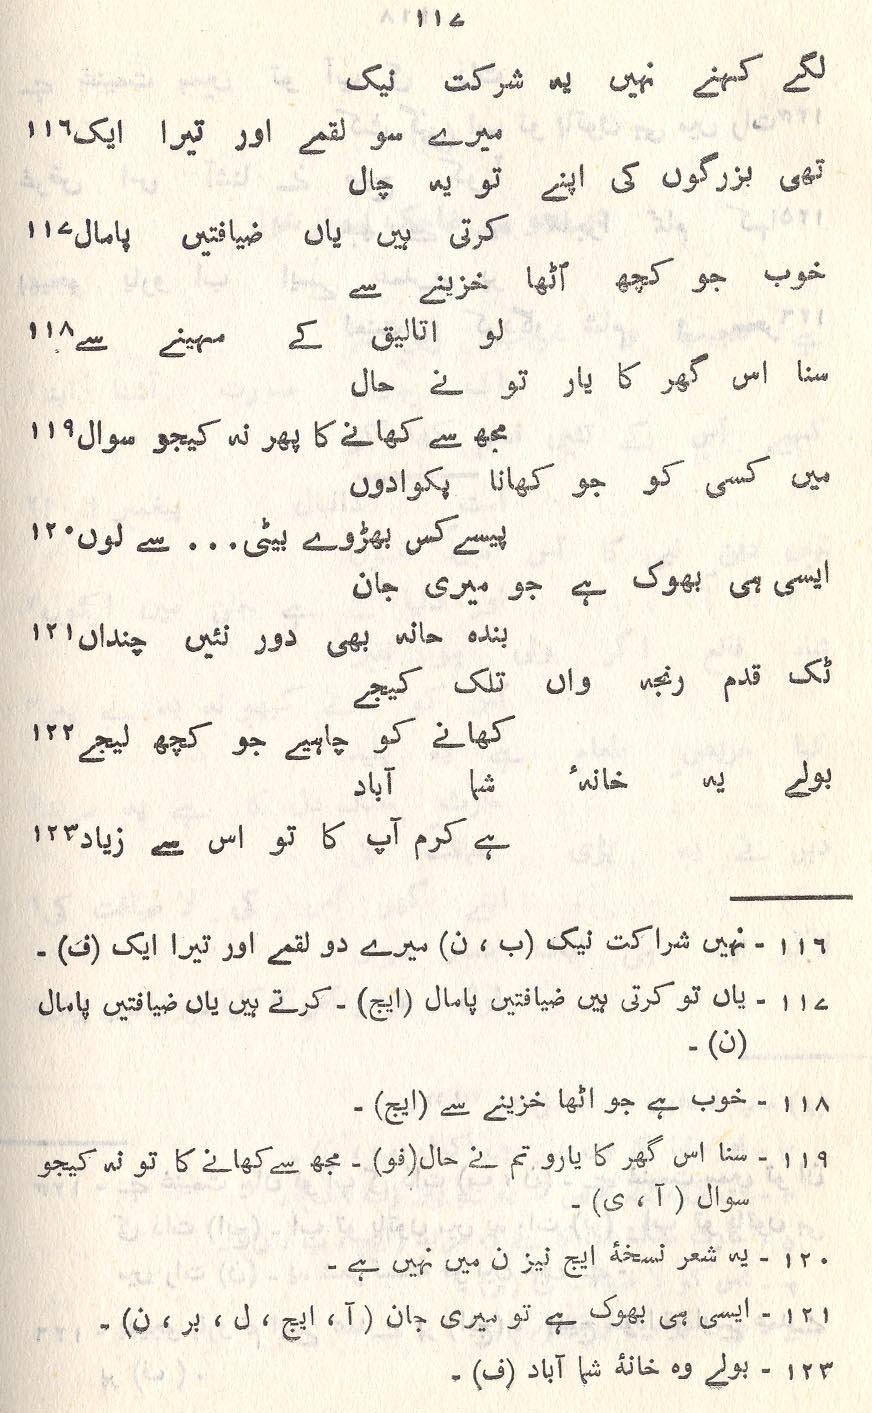 ۱۱۷
لگے کہنے نہیں یہ شرکت نیک
میرے سو لقمے اور تیرا ایک ۱۱٦
تھی بزرگوں کی اپنے تو یہ چال
کرتی ہیں یاں ضیافتیں پامال ۱۱۷
خوب جو کچھ اٹھا خزینے سے
لو اتالیق کے مہینے سے ۱۱۸
سنا اس گھر کا یار تو نے حال
مجھ سے کھانے کا پھر نہ کیجو سوال ۱۱۹
میں کسی کو جو کھانا پکوادوں
پیسے کس بھڑوے بیٹی... سے لوں ۱۲۰
ایسی ہی بھوک ہے جو میری جان
بندہ حانہ بھی دور نئیں چنداں ۱۲۱
ٹک قدم رنجہ واں تلک کیجے
کھانے کو چاہیے جو کچھ لیجے ۱۲۲
بولے یہ خانہٴ شما آباد
ہے کرم آپ کا تو اس سے زیاد ۱۲۳
۱۱٦ - نہیں شراکت نیک (ب ، ن) میرے دو لقمے اور تیرا ایک (ف) -
۱۱۷ - یاں تو کرتی ہیں ضیافتیں پامال (ایچ) - کرتے ہیں یاں ضیافتیں پامال
(ن) -
۱۱۸ - خوب ہے جو اٹھا خزینے سے (ایچ) -
۱۱۹ - سنا اس گھر کا یارو تم نے حال (فو) - مجھ سے کھانے کا تو نہ کیجو
سوال (آ ، ی) -
۱۲۰ - یہ شعر نسخۂ ایچ نیز ن میں نہیں ہے -
۱۲۱ - ایسی ہی بھوک ہے تو میری جان (آ ، ایچ ، ل ، بر ، ن) -
۱۲۳ - بولے وہ خانۂ شما آباد (ف) -